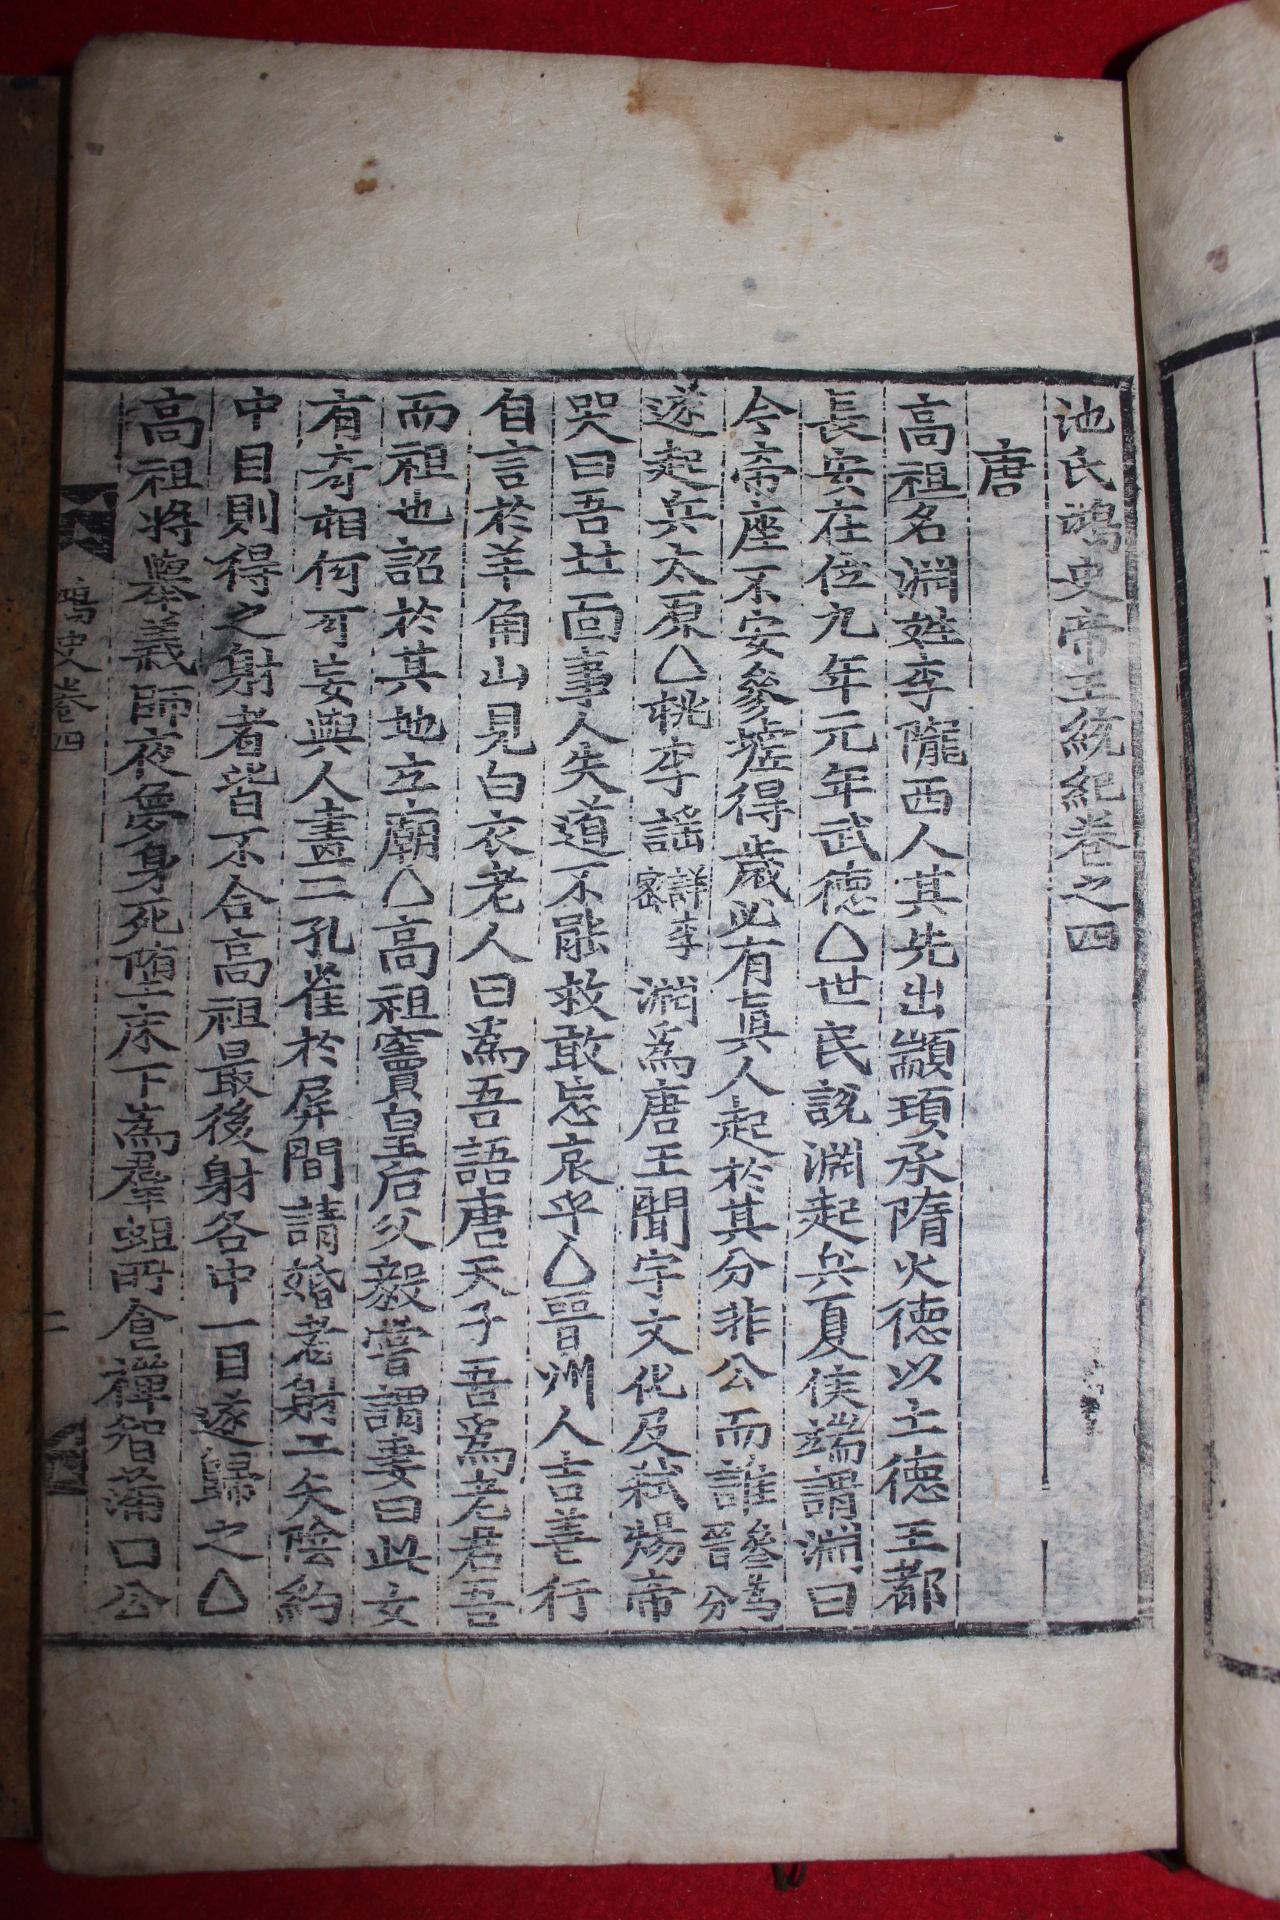 池氏鴻史帝王統紀卷之四
唐
高祖名淵姓李隴西人其先出顓頊承隋火德以土德王都
長安在位九年元年武德△世民說淵起兵夏侯端謂淵曰
今帝座不安參墟得歲必有眞人起於其分非公而誰參為晉分
遂起兵太原△桃李謠詳李密淵為唐王聞宇文化及弑煬帝
哭曰吾北面事人失道不能救敢忘哀乎△晉州人吉善行
自言於羊角山見白衣老人曰為吾語唐天子吾為老君吾
而祖也詔於其地立廟△高祖竇皇后父毅嘗謂妻曰此女
有奇相何可妄與人畫二孔雀於屛間請婚者射二矢陰約
中目則得之射者皆不合高祖最後射各中一目遂歸之△
高祖將擧義師夜夢身死墮床下為羣蛆所食禪智滿曰公
鴻史卷四